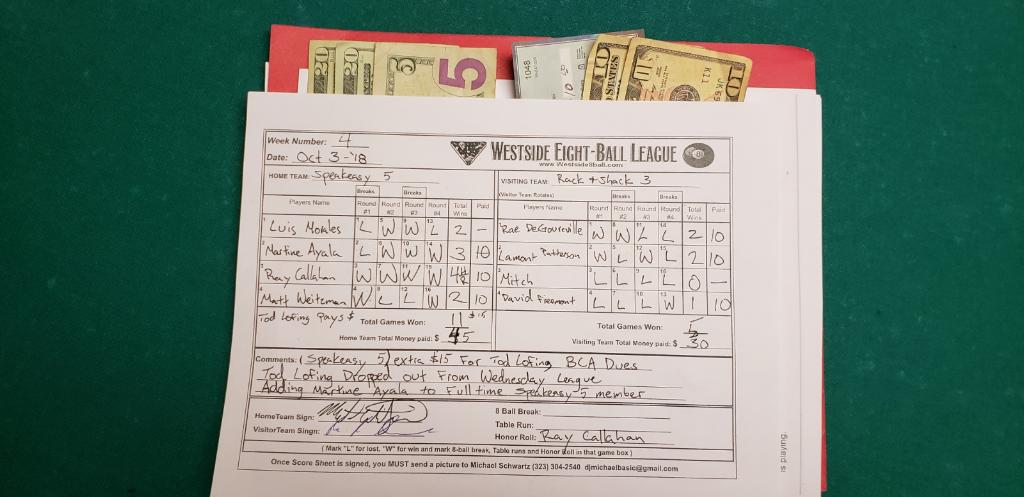 20 20 5 5
1048
STATES
10 K11 10
Week Number: 4
Date: Oct 3-'18
WESTSIDE EIGHT-BALL LEAGUE
www.Westside8ball.com
HOME TEAM: Speakeasy 5
VISITING TEAM: Rack + Shack 3
(Visitor Team Rotates)
Breaks Breaks
Players Name Round #1 Round #2 Round #3 Round #4 Total Wins Paid
Luis Morales L W W L 2 -
Martine Ayala L W W W 3 10
Ray Callahan W W W W 4 10
Matt Weitzman W L L W 2 10
Tod Lofing Pays $ Total Games Won: 11 $15
Home Team Total Money paid: $ 45
Breaks Breaks
Players Name Round #1 Round #2 Round #3 Round #4 Total Wins Paid
Rae DeGoureville W W L L 2 10
Lamont Patterson W L W L 2 10
Mitch L L L L 0 -
David Freemont L L L W 1 10
Total Games Won: 5
Visiting Team Total Money paid: $ 30
Comments: (Speakeasy 5) extra $15 For Tod Lofing BCA Dues
Tod Lofing Dropped out From Wednesday League
Adding Martine Ayala to Full time Speakeasy 5 member
HomeTeam Sign:
VisitorTeam Singn:
8 Ball Break:
Table Run:
Honor Roll: Ray Callahan
( Mark "L" for lost, "W" for win and mark 8-ball break, Table runs and Honor Roll in that game box )
Once Score Sheet is signed, you MUST send a picture to Michael Schwartz (323) 304-2540 djmichaelbasic@gmail.com
is playing.